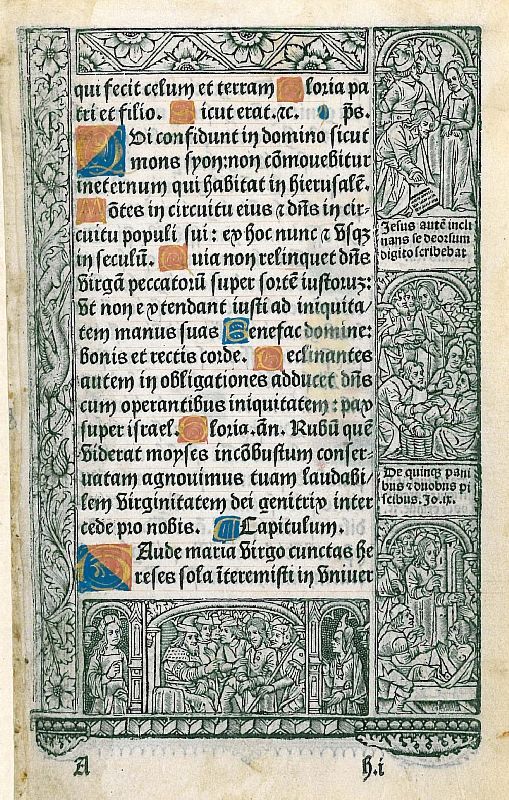 qui fecit celum et terram Gloria pa
tri et filio. Sicut erat. ⁊c. ps.
Qui confidunt in domino sicut
mons syon: non cōmovebitur
ineternum qui habitat in hierusalē.
Mōtes in circuitu eius ⁊ dn̄s in cir-
cuitu populi sui: ex hoc nunc ⁊ vsq;
in seculū. Quia non relinquet dn̄s
virgā peccatorū super sortē iustoruꝫ:
vt non extendant iusti ad iniquita/
tem manus suas Benefac domine:
bonis et rectis corde. Declinantes
autem in obligationes adducet dn̄s
cum operantibus iniquitatem: pax
super israel. Gloria. ān. Rubū quē
viderat moyses incōbustum conser-
uatam agnouimus tuam laudabi/
lem virginitatem dei genitrix inter
cede pro nobis. ¶ Capitulum.
Gaude maria virgo cunctas he
reses sola īteremisti in vniuer
Jesus autē incli
nans se deorsum
digito scribebat
De quinq; pani
bus ⁊ duobus pi
scibus. Jo. ix.
A h.i